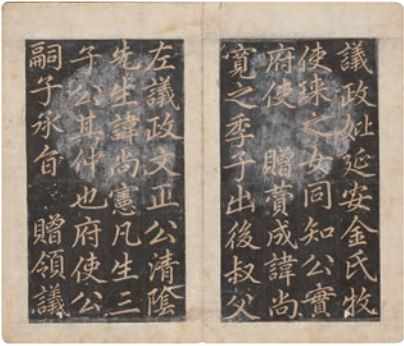 議政妣延安金氏牧
使琜之女同知公實
府使 贈賛成諱尚
寬之季子出後叔父
左議政文正公清陰
先生諱尚憲凡生三
子公其仲也府使公
嗣子承旨 贈領議